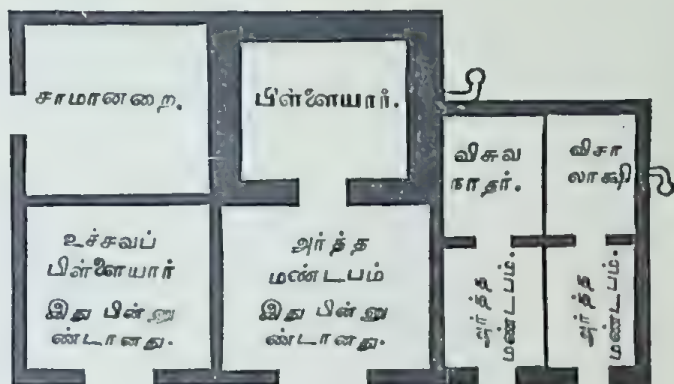 சாமானறை.
பிள்ளையார்.
விசுவ
நாதர்.
விசா
லாக்ஷி
உச்சவப்
பிள்ளையார்
இது பின்னு
ண்டானது.
அர்த்த
மண்டபம்
இது பின்னு
ண்டானது.
அர்த்த
மண்டபம்.
அர்த்த
மண்டபம்.